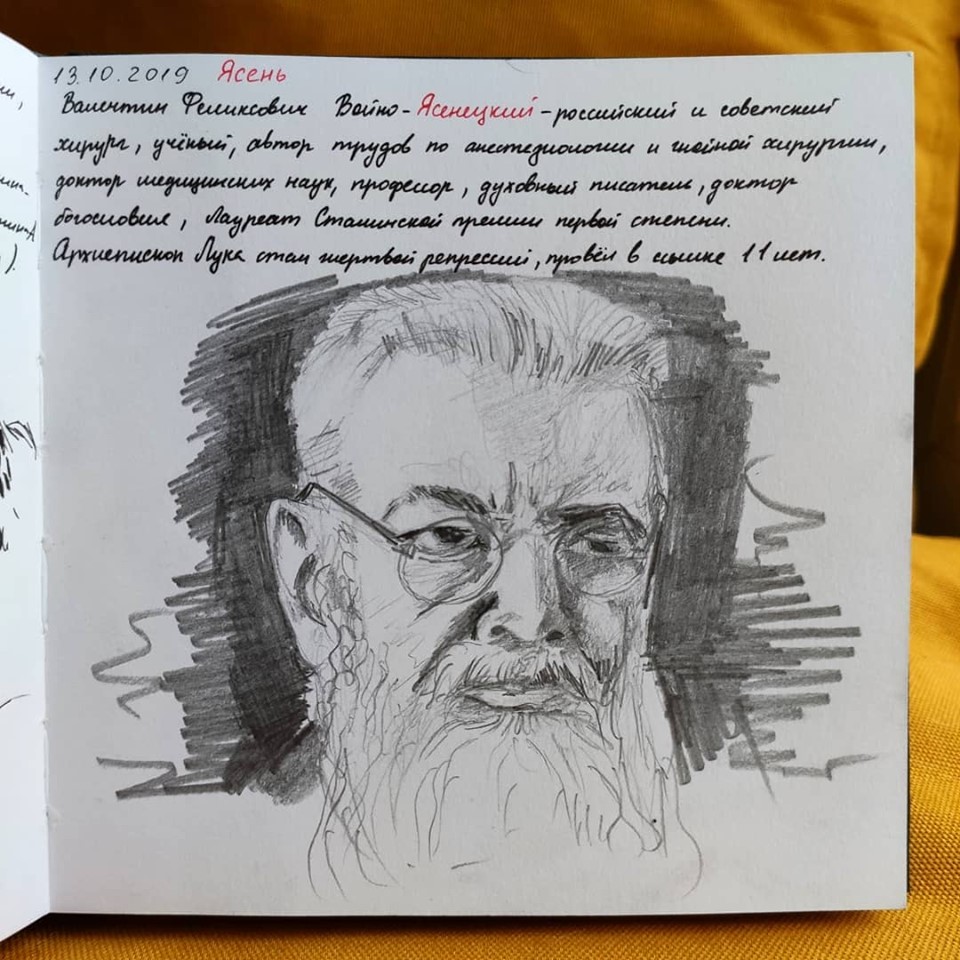 13.10.2019 Ясень
Валентин Феликсович Войно-Ясенецкий - российский и советский
хирург, учёный, автор трудов по анестезиологии и гнойной хирургии,
доктор медицинских наук, профессор, духовный писатель, доктор
богословия, Лауреат Сталинской премии первой степени.
Архиепископ Лука стал жертвой репрессий, провёл в ссылке 11 лет.